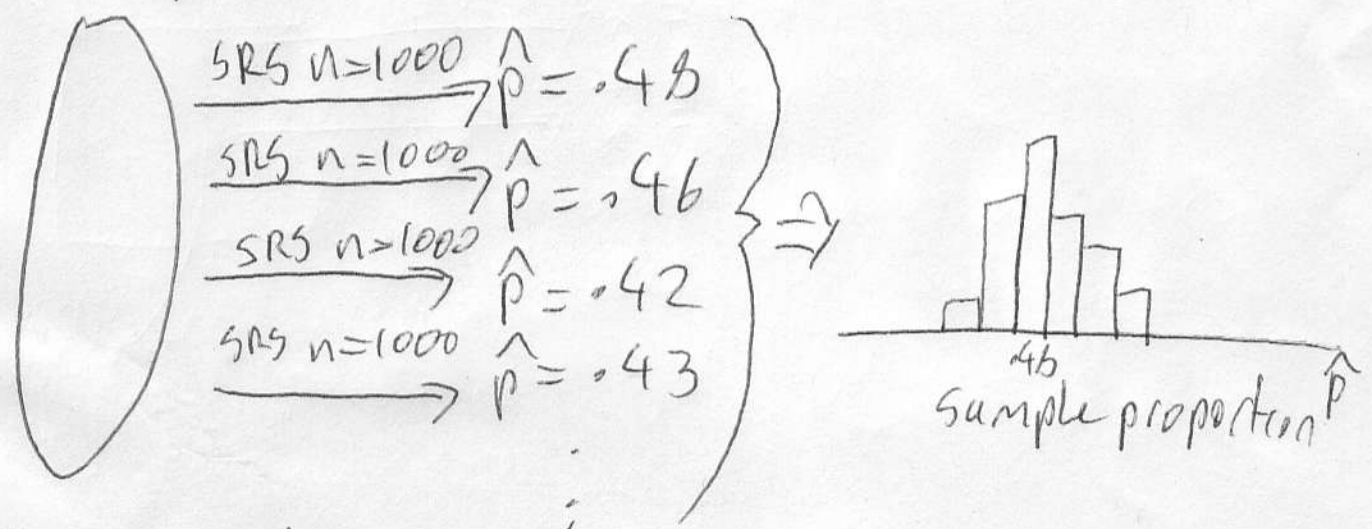 SRS n=1000 p̂ = .48
SRS n=1000 p̂ = .46
SRS n>1000 p̂ = .42
SRS n=1000 p̂ = .43
⋮
⇒
.46
p̂
sample proportion